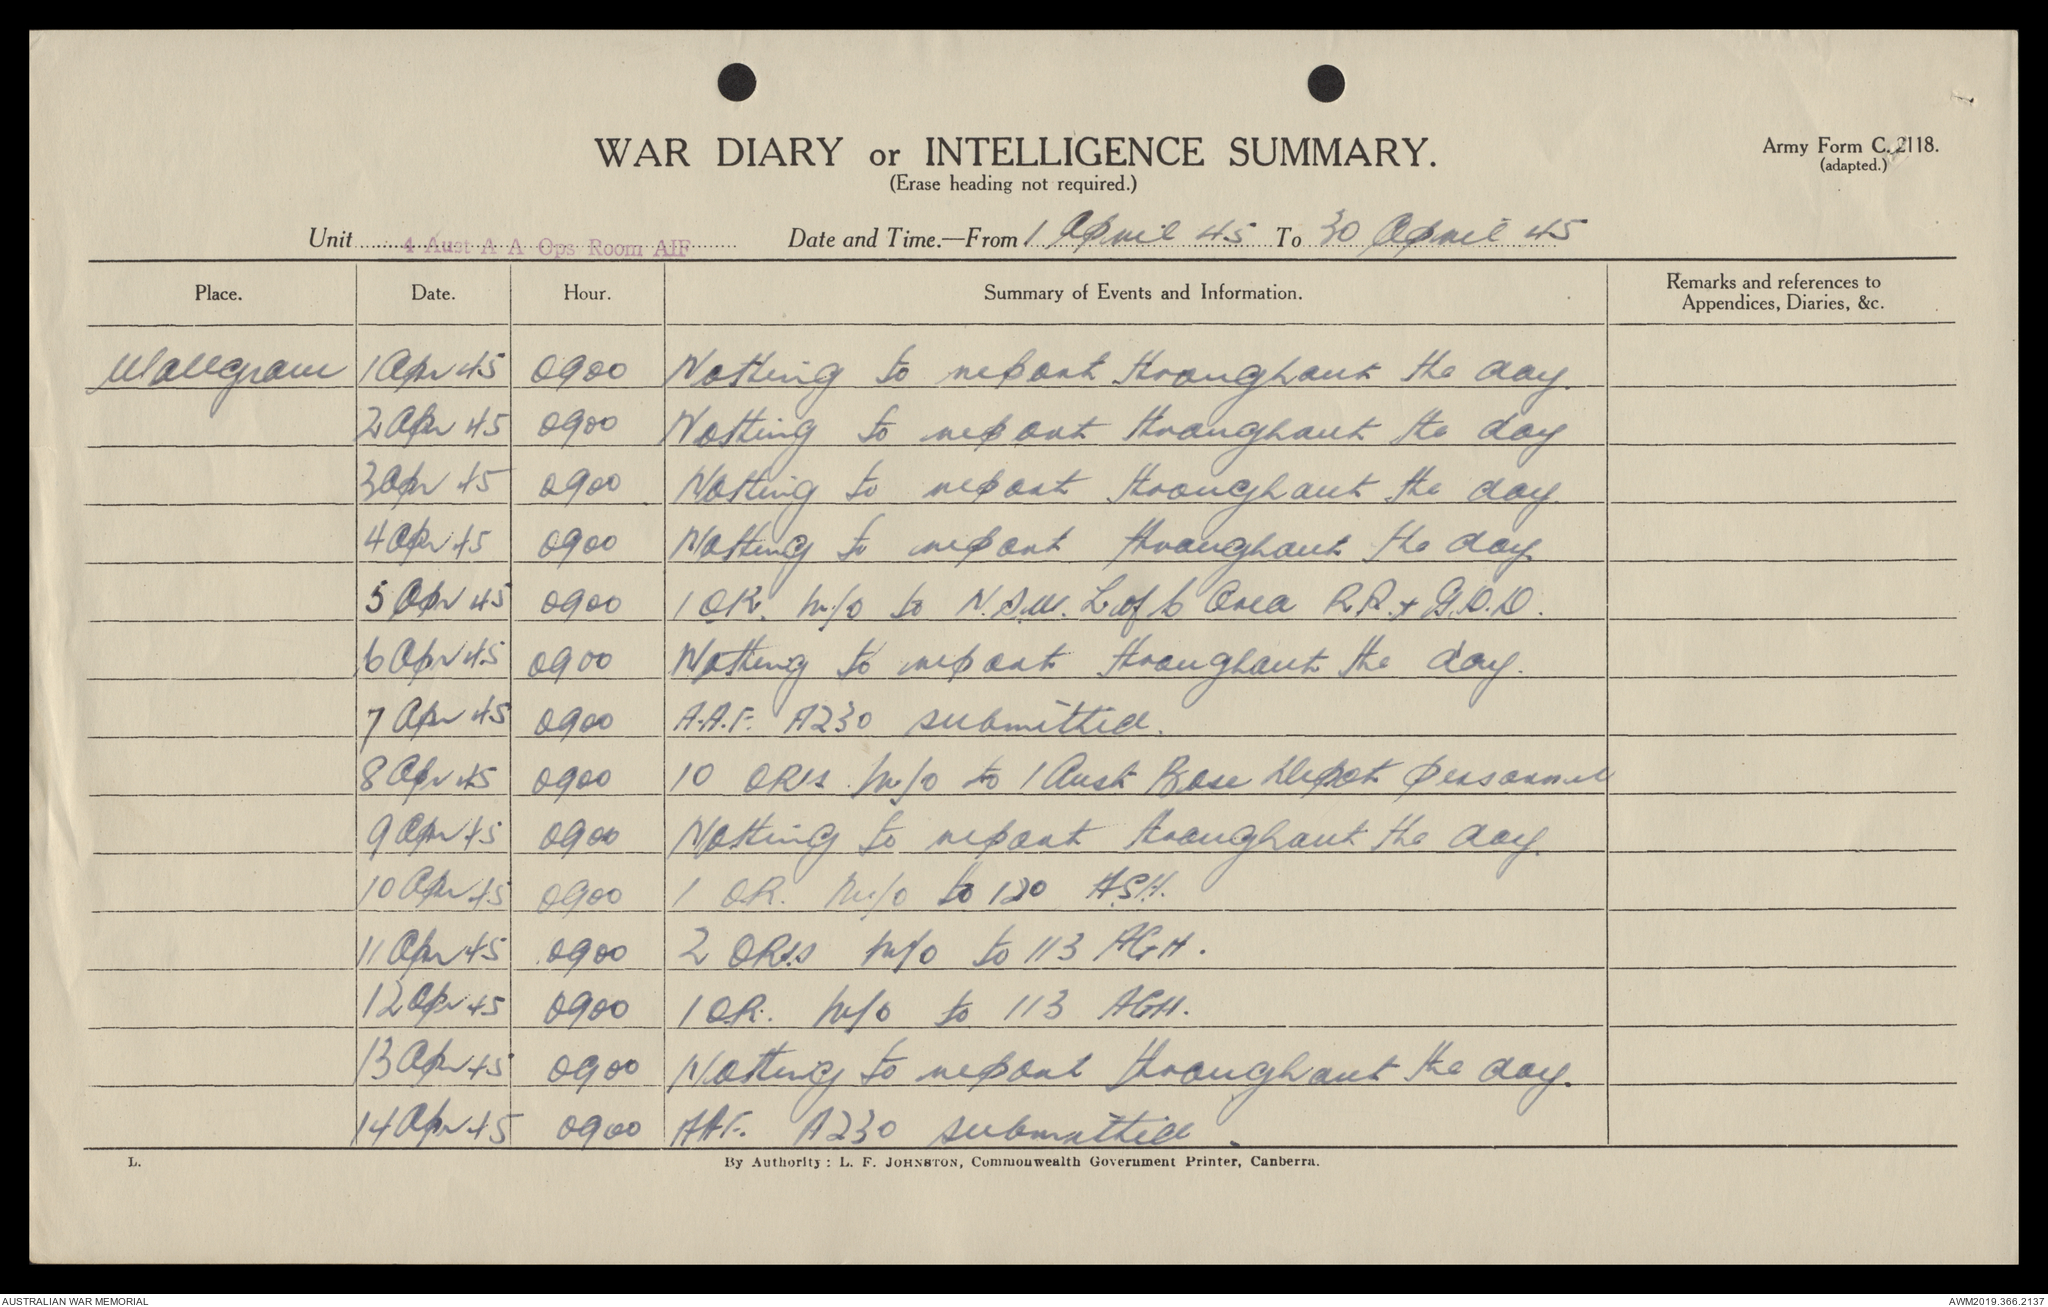 WAR DIARY or INTELLIGENCE SUMMARY.
(Erase heading not required.)
Army Form C. 2118.
(adapted.)
Unit 4 Aust A A Ops Room AIF Date and Time.—From 1 April 45 To 30 April 45
Place. Date. Hour. Summary of Events and Information. Remarks and references to
Appendices, Diaries, &c.
Wallgrove 1 Apr 45 0900 Nothing to report throughout the day.
2 Apr 45 0900 Nothing to report throughout the day
3 Apr 45 0900 Nothing to report throughout the day.
4 Apr 45 0900 Nothing to report throughout the day
5 Apr 45 0900 1 OR. m/o to N.S.W. L of C Area R.R. + G.D.D.
6 Apr 45 0900 Nothing to report throughout the day.
7 Apr 45 0900 A.A.F. A230 submitted.
8 Apr 45 0900 10 ORs m/o to 1 Aust Base Depot personnel
9 Apr 45 0900 Nothing to report throughout the day.
10 Apr 45 0900 1 OR. m/o to 120 A.S.H.
11 Apr 45 0900 2 ORs m/o to 113 AGH.
12 Apr 45 0900 1 OR. m/o to 113 AGH.
13 Apr 45 0900 Nothing to report throughout the day.
14 Apr 45 0900 AAF. A230 submitted.
L. By Authority: L. F. JOHNSTON, Commonwealth Government Printer, Canberra.
AUSTRALIAN WAR MEMORIAL AWM2019.366.2137